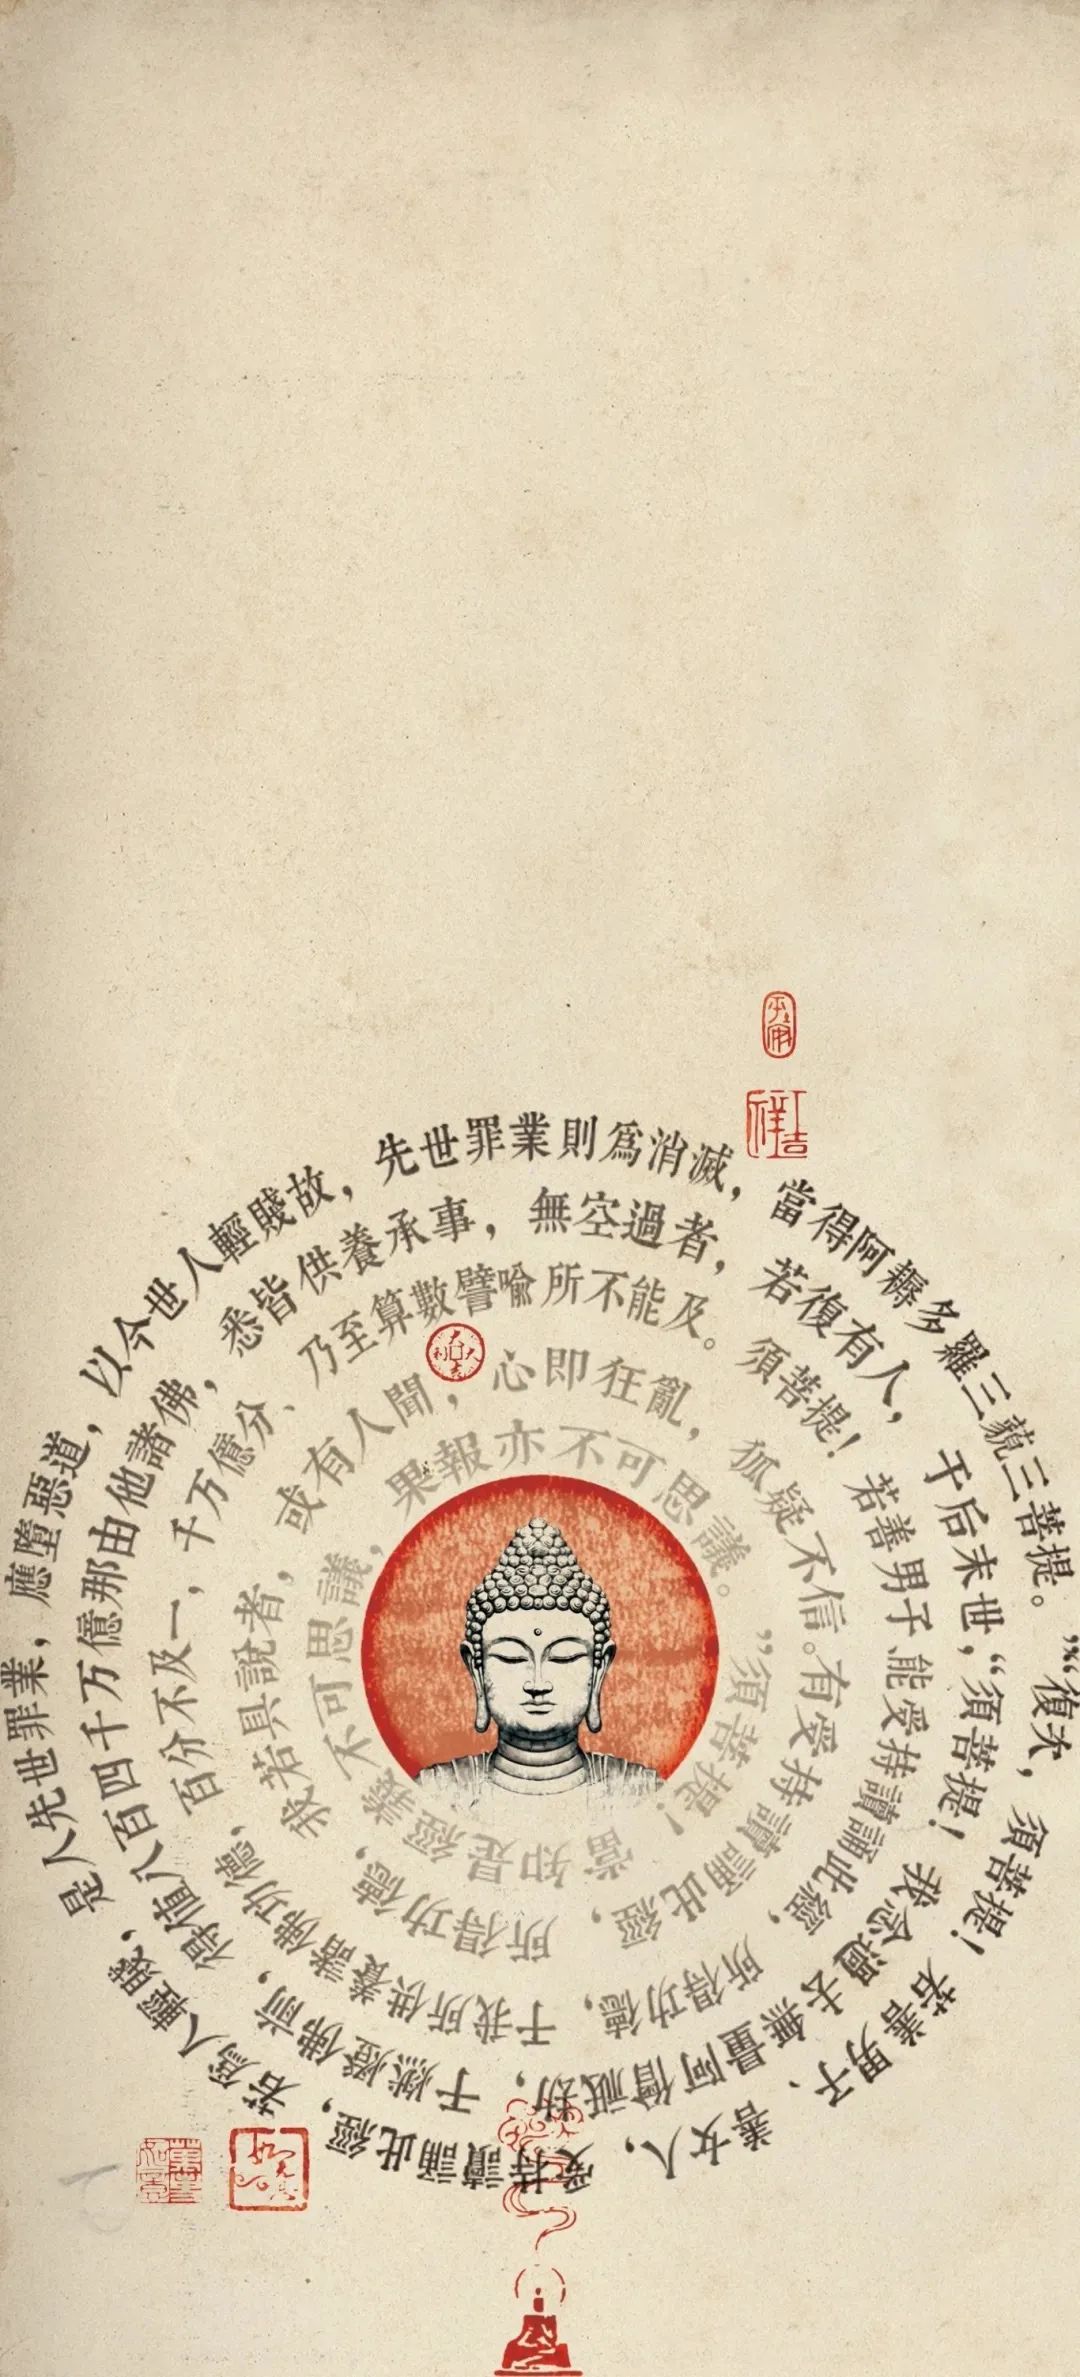 “復次，須菩提！若善男子、善女人，受持讀誦此經，若爲人輕賤，是人先世罪業，應墮惡道，以今世人輕賤故，先世罪業則爲消滅，當得阿耨多羅三藐三菩提。”
“須菩提！我念過去無量阿僧祇劫，于燃燈佛前，得值八百四千万億那由他諸佛，悉皆供養承事，無空過者，若復有人，于后未世，
能受持讀誦此經，所得功德，于我所供養諸佛功德，百分不及一，千万億分、乃至算數譬喻所不能及。須菩提！若善男子
有受持讀誦此經，所得功德，我若具說者，或有人聞，心即狂亂，狐疑不信。
“須菩提！當知是經義，不可思議，果報亦不可思議。”
吉祥
大吉大利